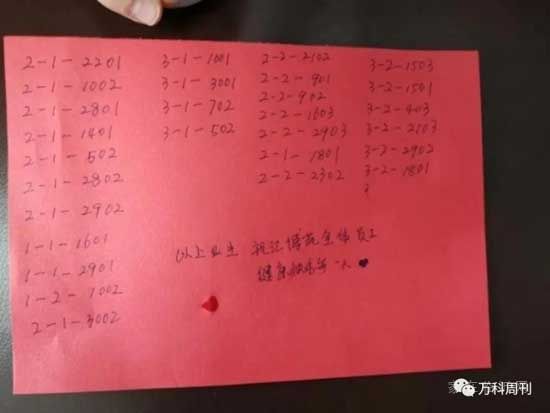 2-1-2201
2-1-1002
2-1-2801
2-1-1401
2-1-502
2-1-2802
2-1-2902
1-1-1601
1-1-2901
1-2-1002
2-1-3002
3-1-1001
3-1-3001
3-1-702
3-1-502
2-2-2102
2-2-901
2-2-902
2-2-1603
2-2-2903
2-1-1801
2-2-2302
3-2-1503
3-2-1501
3-2-403
3-2-2103
3-2-2902
3-2-1801
以上业主 祝 全体员工
健康 每一天
万科周刊